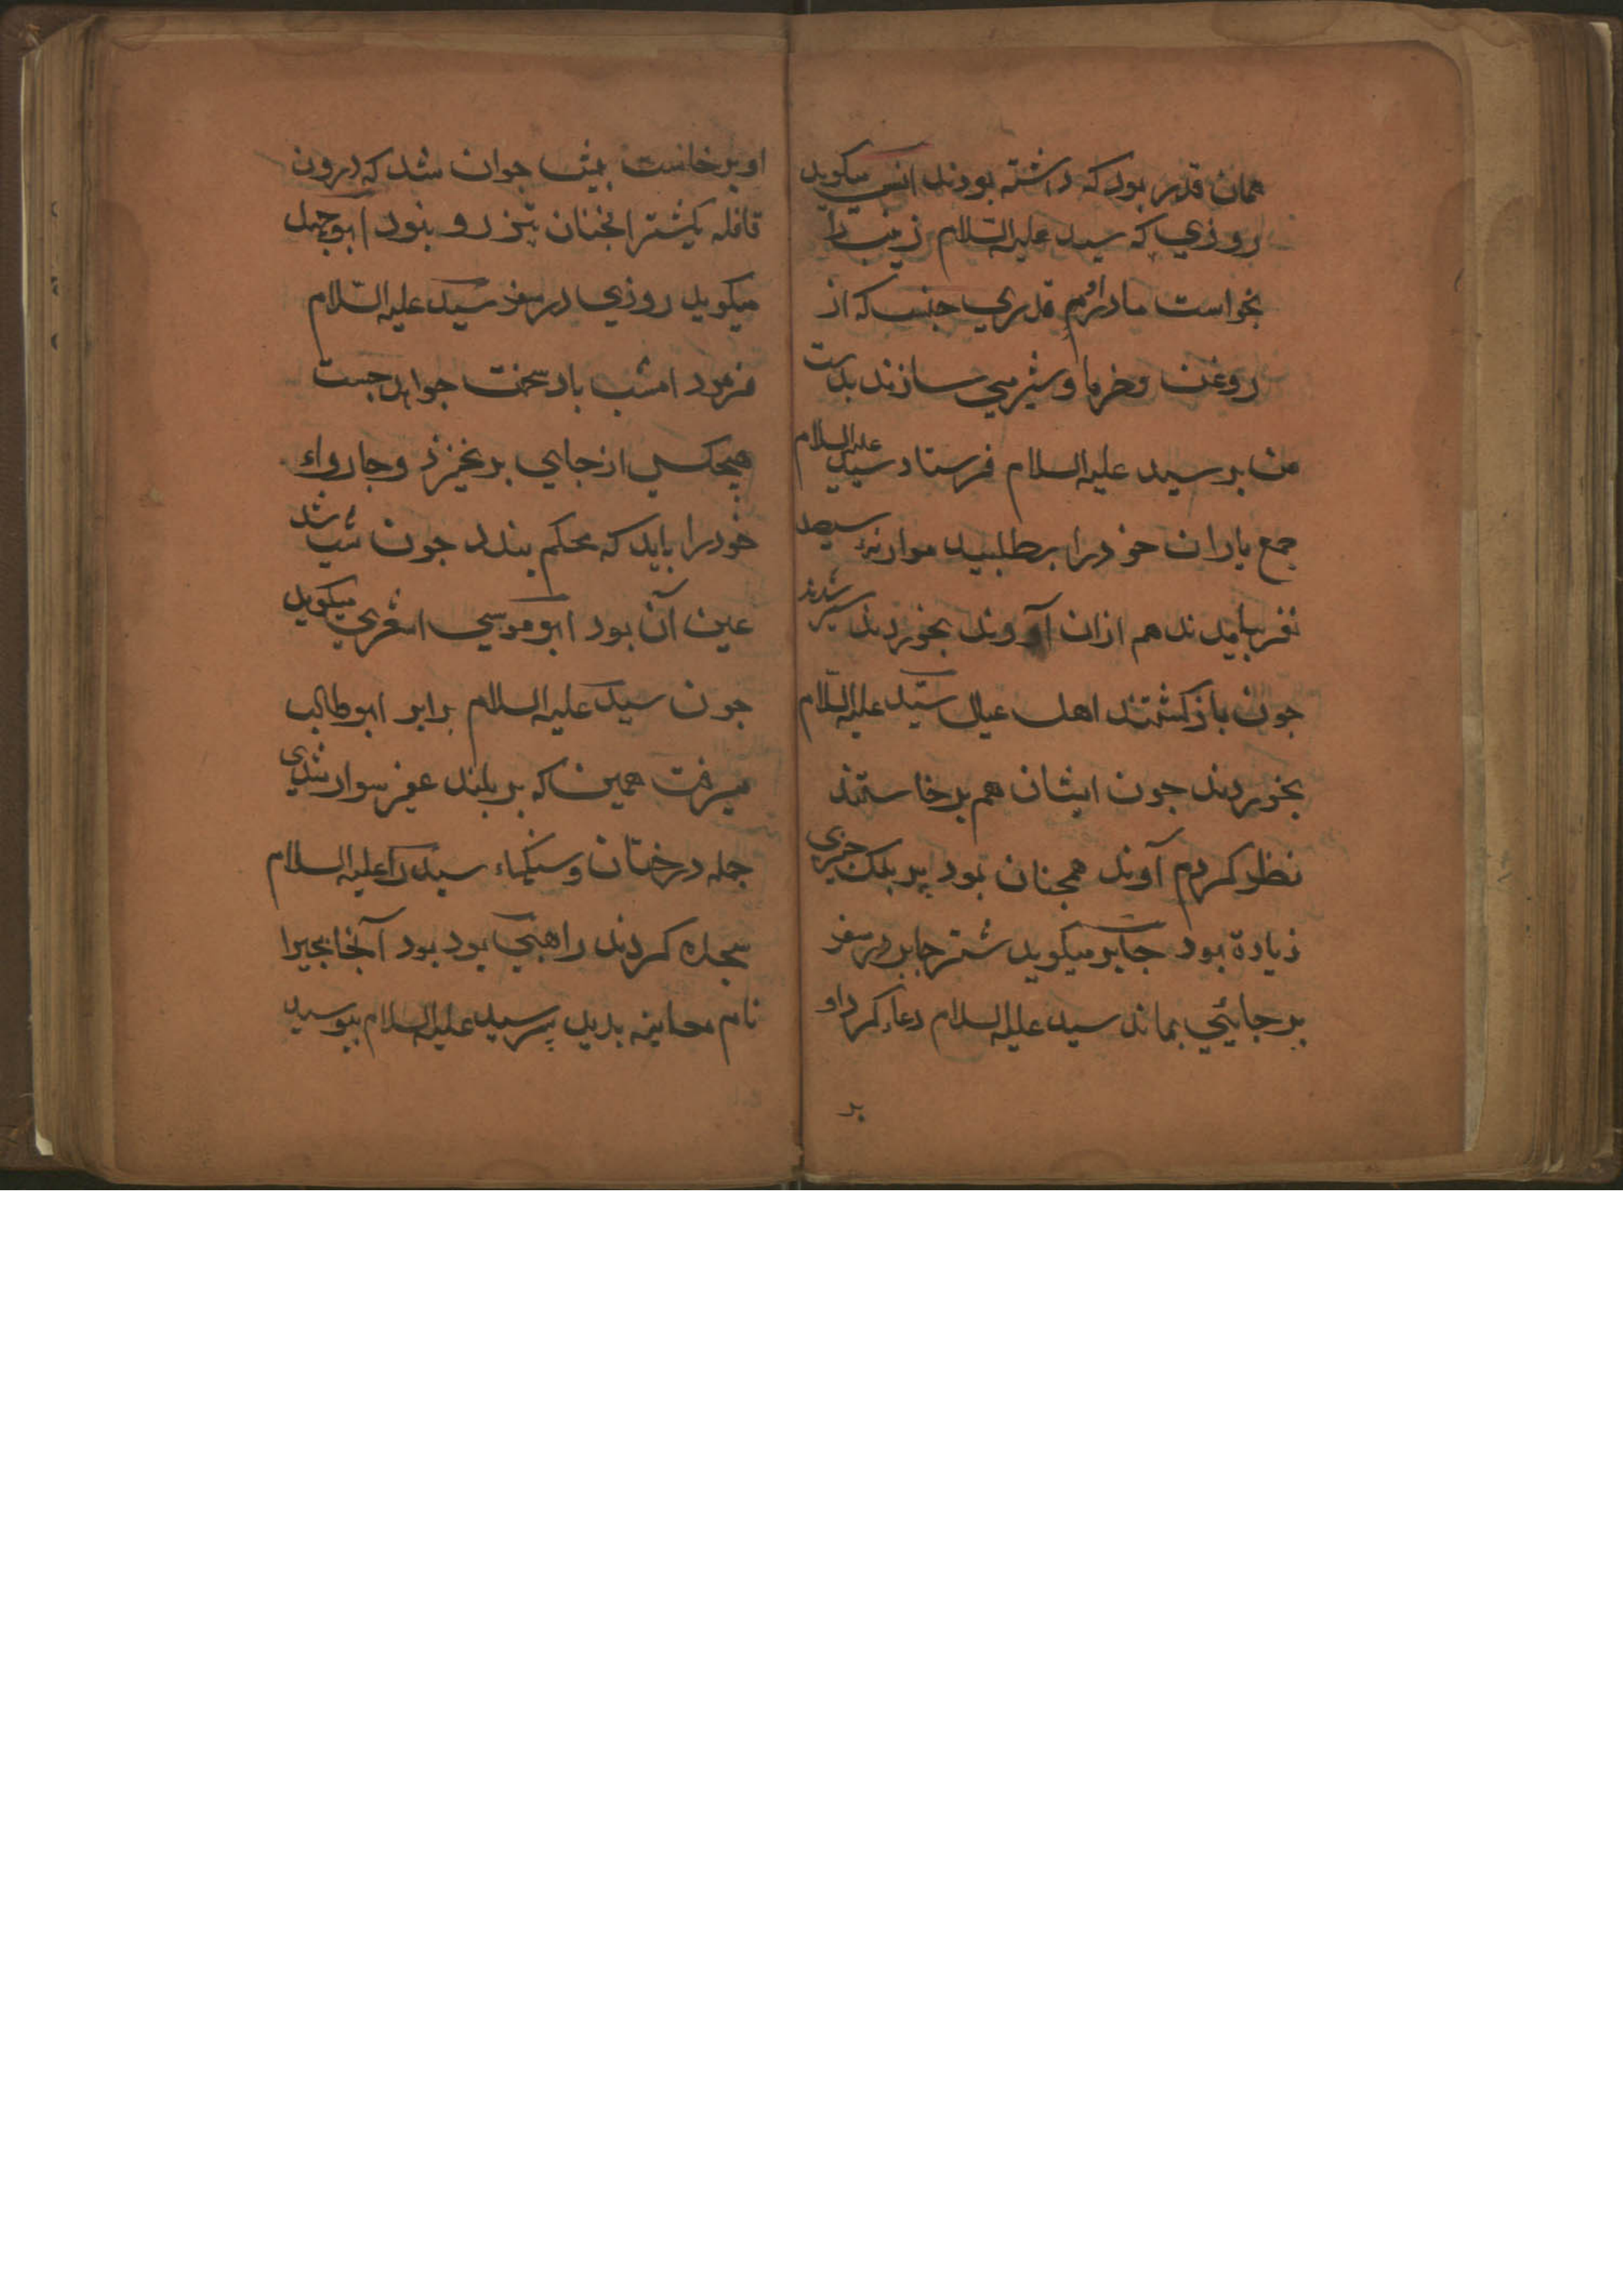 همان قدر بود که داشته بودند انس میکوید
روزي که سید علیه السلام زینب را
بخواست مادرم قدري جنس که از
روغن وخرما وشیر مي سازند بدست
من بر سید علیه السلام فرستاد سید علیه السلام
جمع یاران خود را بطلبید موازنهٔ سیصد
نفر بیامدند هم ازان آوند بخوردند سیر شدند
جون باز کشتند اهل عیال سید علیه السلام
بخوردند جون ایشان هم برخاستند
نظر کردم آوند همجنان بود پر بلک جیزی
زیادة بود جابر میکوید شتر جابر در سفر
بر جایئي بماند سید علیه السلام دعاء کرد او
بر
او برخاست جوان شد که درون
قافله یکشتر انجنان تیز رو نبود ابو جهل
میکوید روزي در سفر سید علیه السلام
فرمود امشب باد سخت جواهد جست
هیجکسي از جایي بر نخیزد وجارواء
خود را باید که محکم بندد جون شب شد
عین آن بود ابو موسي اشعري میکوید
جون سید علیه السلام برابر ابو طالب
میرفت همین که بر بلند سوار شدی
جمله درختان وسنکهاء سید را علیه السلام
سجده کردند راهبي بود بود آنجا بحیرا
نام معاینه بدید بر سید علیه السلام ببوسید